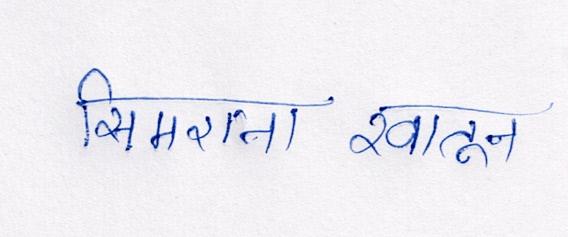 सिमराना खातून